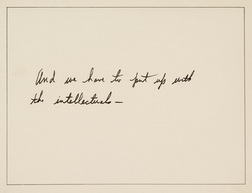 And we have to put up with
the intellectuals —